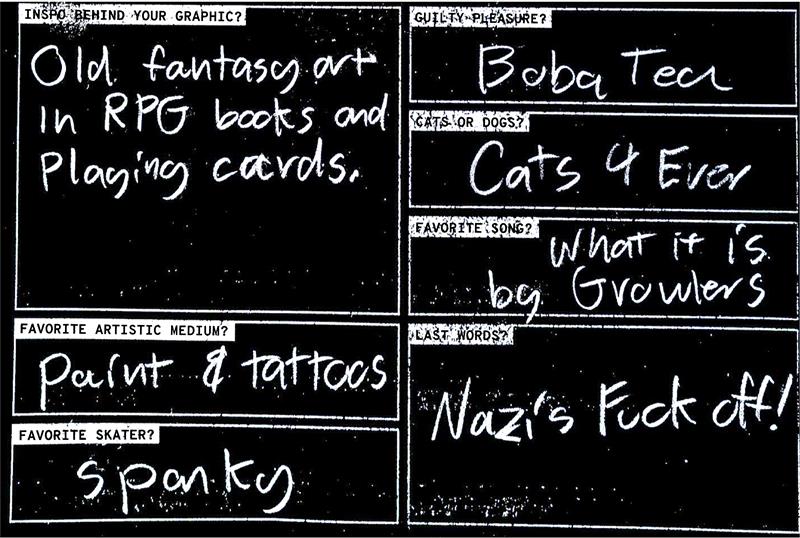 INSPO BEHIND YOUR GRAPHIC?
Old fantasy art
in RPG books and
Playing cards.
FAVORITE ARTISTIC MEDIUM?
paint & tattoos
FAVORITE SKATER?
spanky
GUILTY PLEASURE?
Boba Tea
CATS OR DOGS?
Cats 4 Ever
FAVORITE SONG?
What it is
by Growlers
LAST WORDS?
Nazi's Fuck off!